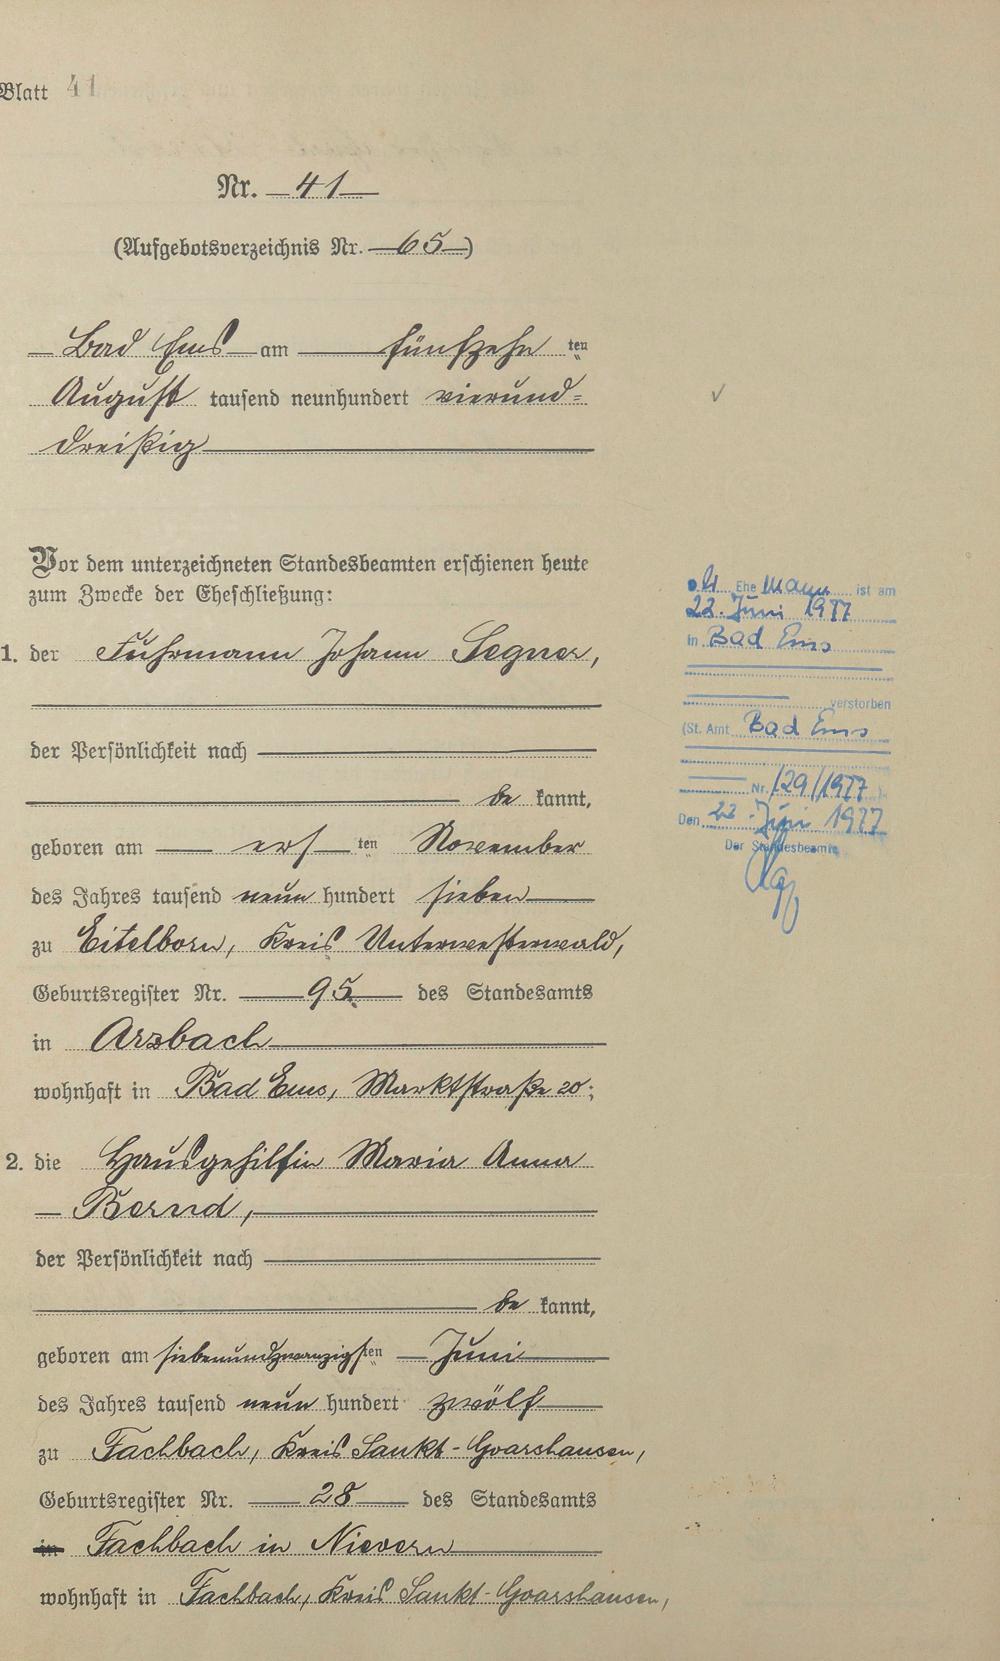 Blatt 41
Nr. 41
(Aufgebotsverzeichnis Nr. 65)
Bad Ems am fünfzehn ten
August tausend neunhundert vierund-
dreißig
Vor dem unterzeichneten Standesbeamten erschienen heute
zum Zwecke der Eheschließung:
1. der Fuhrmann Johann Segner,
der Persönlichkeit nach
be kannt,
geboren am ers ten November
des Jahres tausend neun hundert sieben
zu Eitelborn, Kreis Unterwesterwald,
Geburtsregister Nr. 95 des Standesamts
in Arzbach
wohnhaft in Bad Ems, Marktstraße 20;
2. die Hausgehilfin Maria Anna
Bernd,
der Persönlichkeit nach
be kannt,
geboren am siebenundzwanzigsten Juni
des Jahres tausend neun hundert zwölf
zu Fachbach, Kreis Sankt-Goarshausen,
Geburtsregister Nr. 28 des Standesamts
in Fachbach in Nievern
wohnhaft in Fachbach, Kreis Sankt-Goarshausen,
Ehe mann ist am
22. Juni 1977
in Bad Ems
verstorben
(St. Amt Bad Ems
Nr. 129/1977
Den 22. Juni 1977
Der Standesbeamte